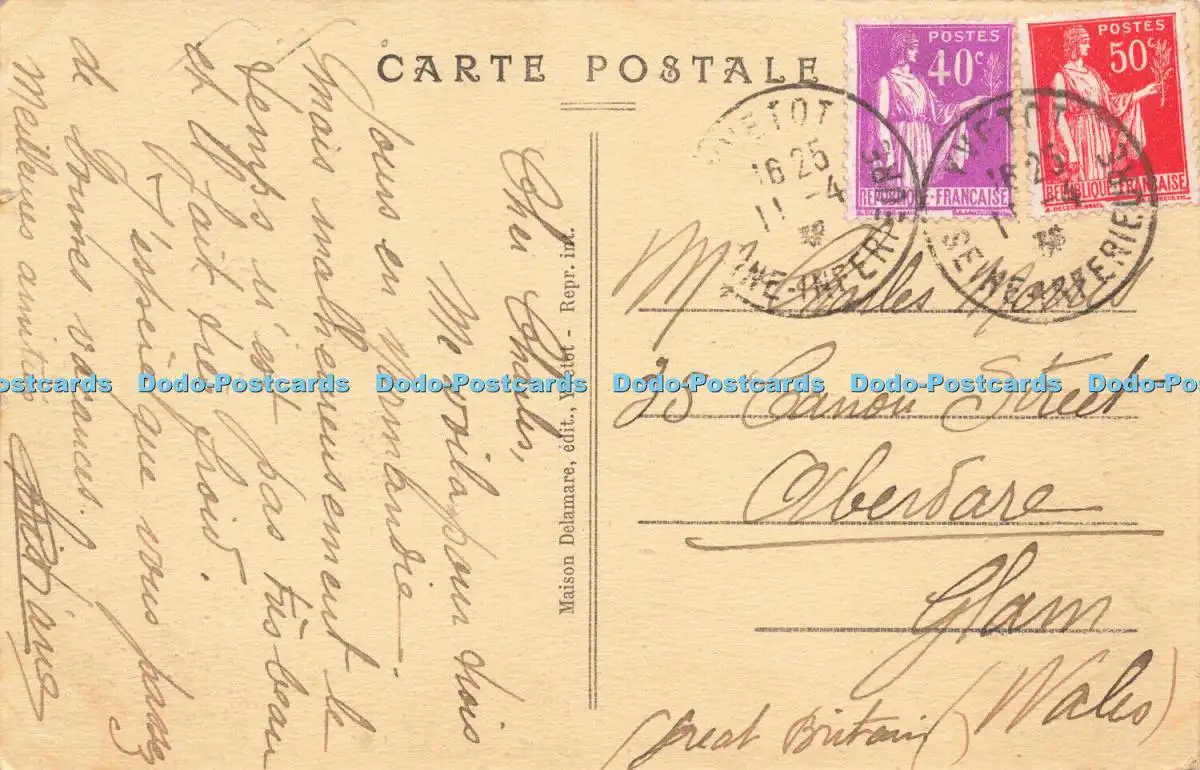 CARTE POSTALE
POSTES
40c
REPUBLIQUE-FRANÇAISE
POSTES
50c
REPUBLIQUE-FRANÇAISE
YVETOT
16 25
11 -4
SEINE-INFERIEURE
YVETOT
16 25
SEINE-INFERIEURE
Cher Charles,
Me voila pour trois
jours en Normandie.
Mais malheureusement le
temps n'est pas très beau
et il fait très froid.
J'espère que vous passez
de bonnes vacances.
Meilleures amitiés
Maison Delamare, édit., Yvetot - Repr. int.
Mr Charles
23 Canon Street
Aberdare
Glam
(Wales)
(Great Britain)
Dodo-Postcards Dodo-Postcards Dodo-Postcards Dodo-Postcards Dodo-Postcards Dodo-Postcards